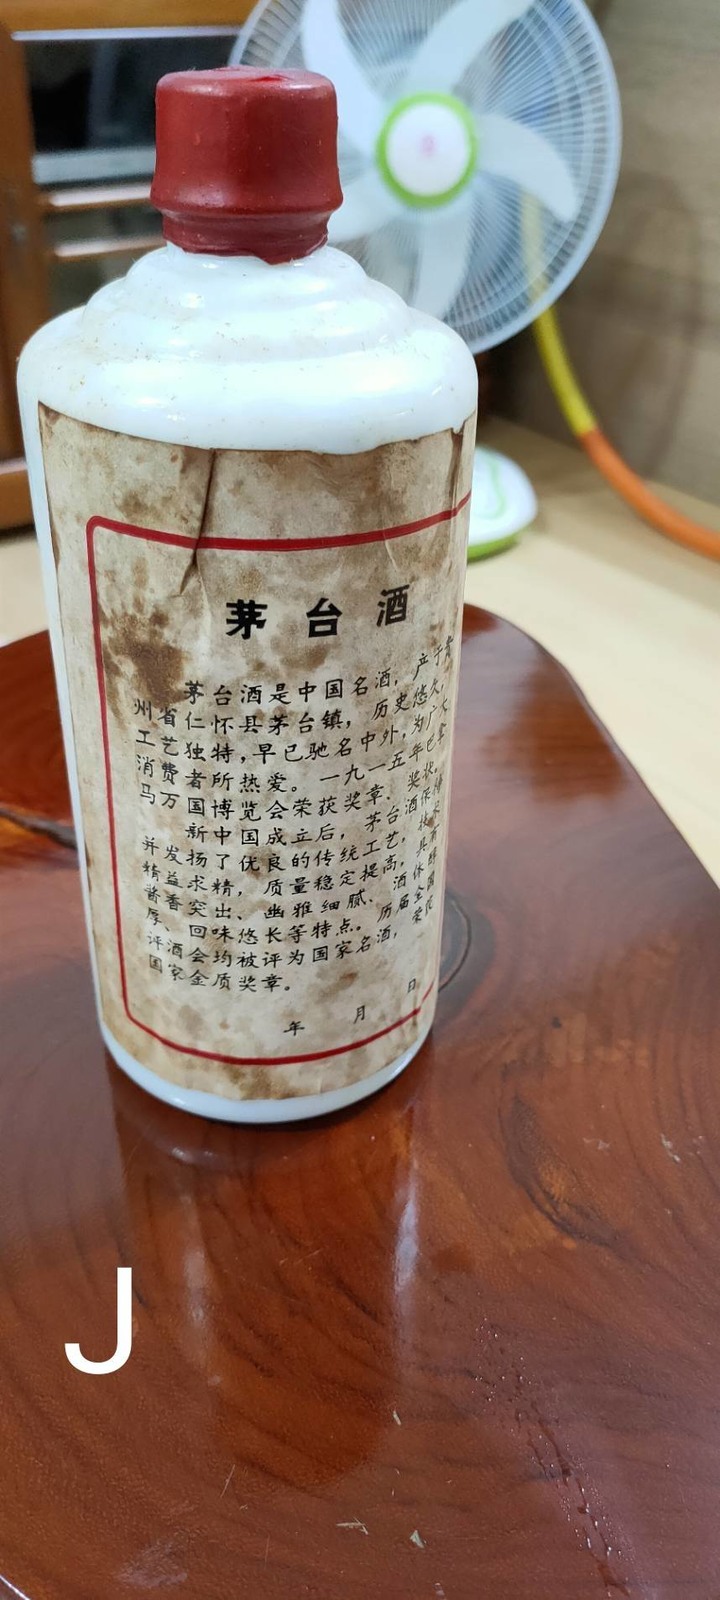 茅台酒
茅台酒是中国名酒，产于贵
州省仁怀县茅台镇，历史悠久，
工艺独特，早已驰名中外，为广大
消费者所热爱。一九一五年巴拿
马万国博览会荣获奖章、奖状。
新中国成立后，茅台酒保持
并发扬了优良的传统工艺，
精益求精，质量稳定提高，具有
酱香突出、幽雅细腻、酒体醇
厚、回味悠长等特点。历届全国
评酒会均被评为国家名酒，荣
国家金质奖章。
年 月 日
J